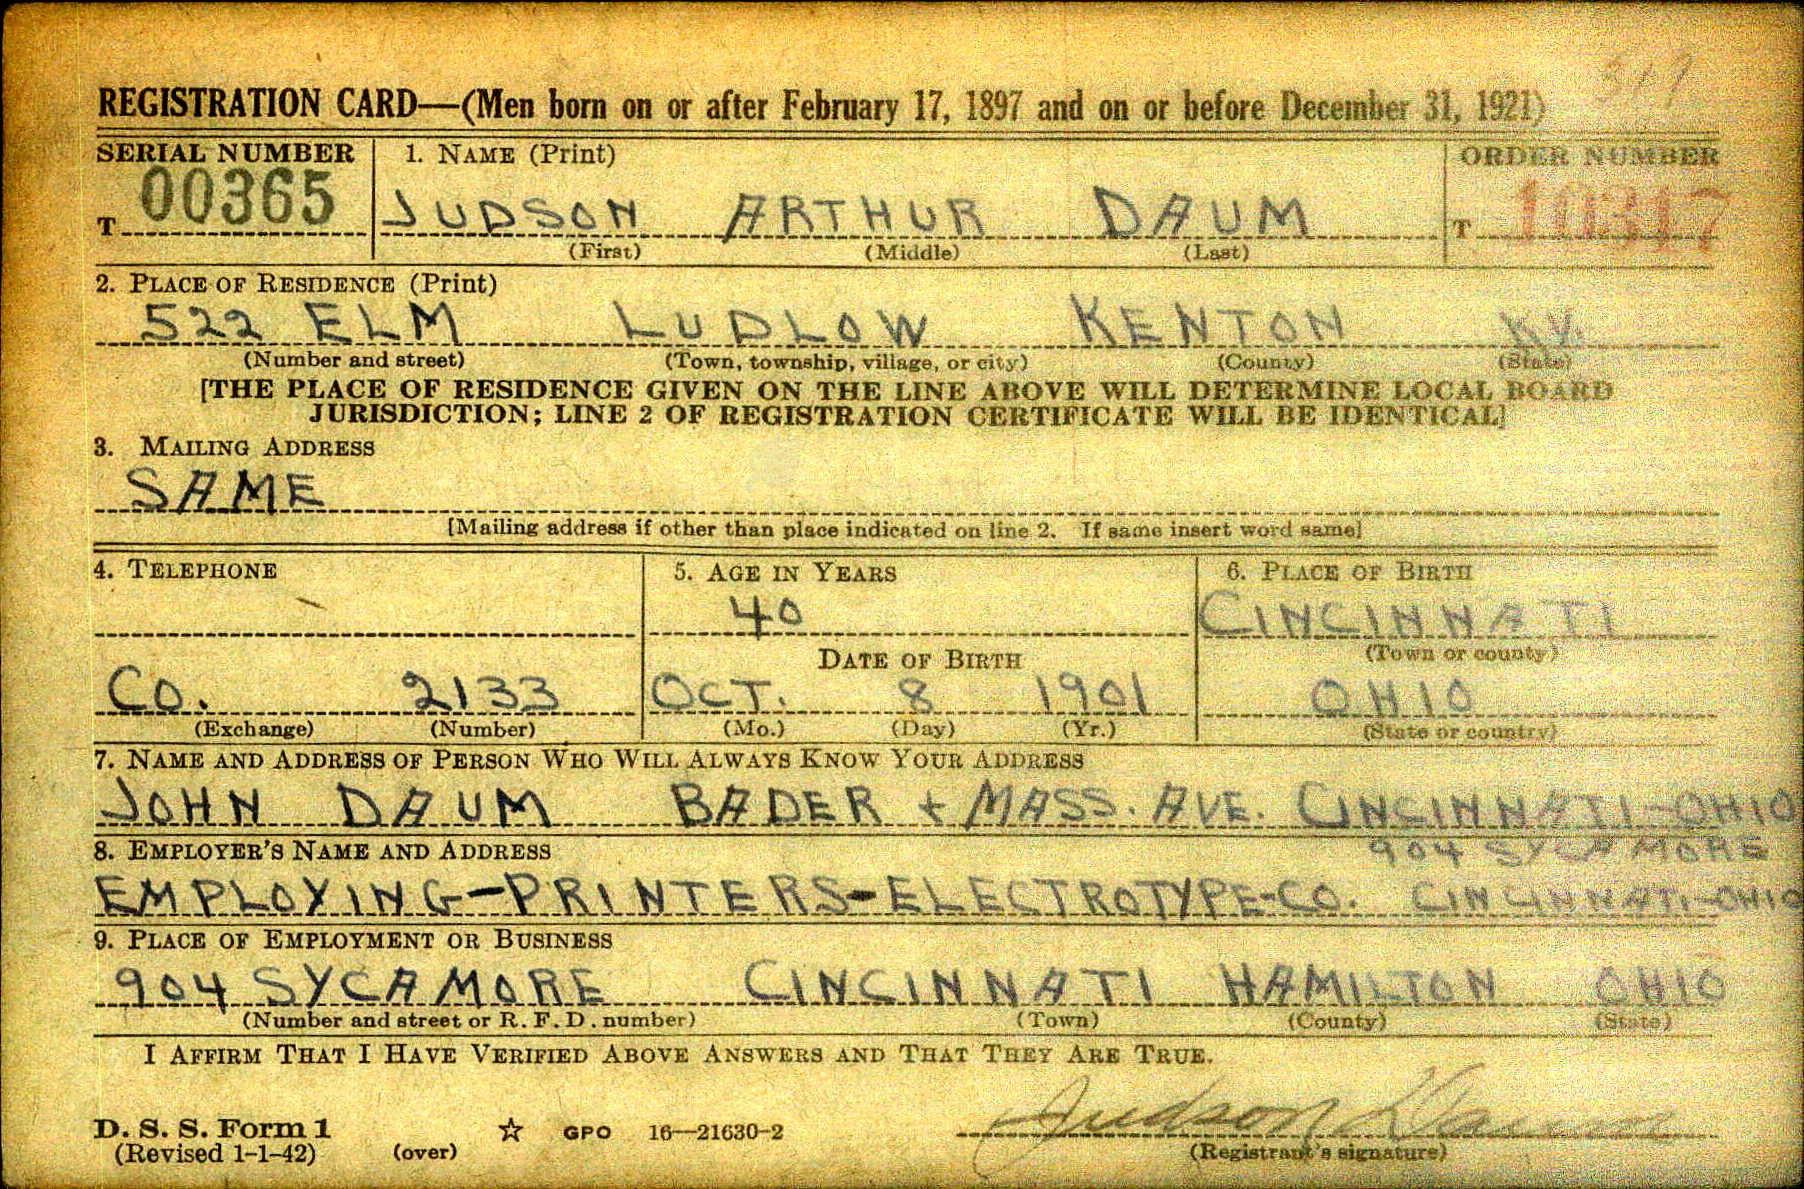 REGISTRATION CARD—(Men born on or after February 17, 1897 and on or before December 31, 1921)
SERIAL NUMBER 1. NAME (Print) ORDER NUMBER
T 00365 JUDSON ARTHUR DAUM T 10317
(First) (Middle) (Last)
2. PLACE OF RESIDENCE (Print)
522 ELM LUDLOW KENTON KY.
(Number and street) (Town, township, village, or city) (County) (State)
[THE PLACE OF RESIDENCE GIVEN ON THE LINE ABOVE WILL DETERMINE LOCAL BOARD
JURISDICTION; LINE 2 OF REGISTRATION CERTIFICATE WILL BE IDENTICAL]
3. MAILING ADDRESS
SAME
[Mailing address if other than place indicated on line 2. If same insert word same]
4. TELEPHONE 5. AGE IN YEARS 6. PLACE OF BIRTH
40 CINCINNATI
DATE OF BIRTH (Town or county)
CO. 2133 OCT. 8 1901 OHIO
(Exchange) (Number) (Mo.) (Day) (Yr.) (State or country)
7. NAME AND ADDRESS OF PERSON WHO WILL ALWAYS KNOW YOUR ADDRESS
JOHN DAUM BADER + MASS. AVE. CINCINNATI-OHIO
8. EMPLOYER'S NAME AND ADDRESS 904 SYCAMORE
EMPLOYING-PRINTERS-ELECTROTYPE-CO. CINCINNATI-OHIO
9. PLACE OF EMPLOYMENT OR BUSINESS
904 SYCAMORE CINCINNATI HAMILTON OHIO
(Number and street or R. F. D. number) (Town) (County) (State)
I AFFIRM THAT I HAVE VERIFIED ABOVE ANSWERS AND THAT THEY ARE TRUE.
Judson Daum
D. S. S. Form 1
(Revised 1-1-42) (over) ☆ GPO 16—21630-2 (Registrant's signature)